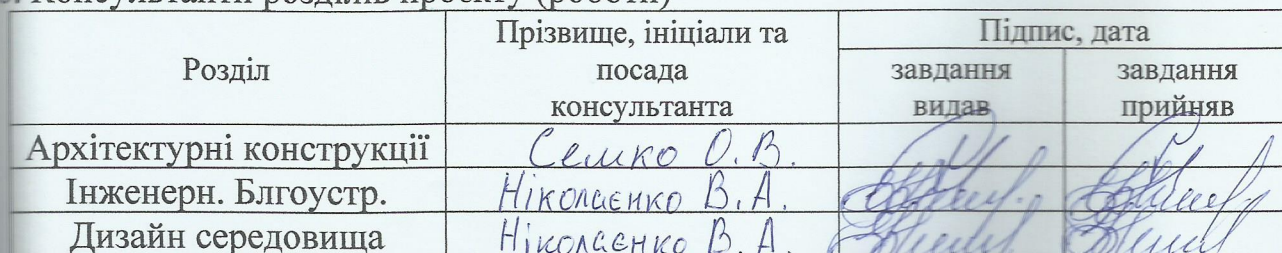 Консультанти розділів проєкту (роботи)
Розділ
Прізвище, ініціали та
посада
консультанта
Підпис, дата
завдання
видав
завдання
прийняв
Архітектурні конструкції Семко О. В.
Інженерн. Блгоустр. Ніколаєнко В. А.
Дизайн середовища Ніколаєнко В. А.